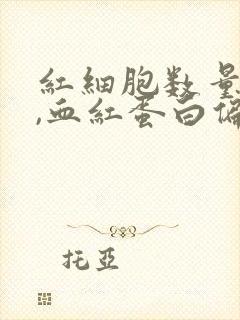 紅細胞数量
,血紅蛋白偏
托亞